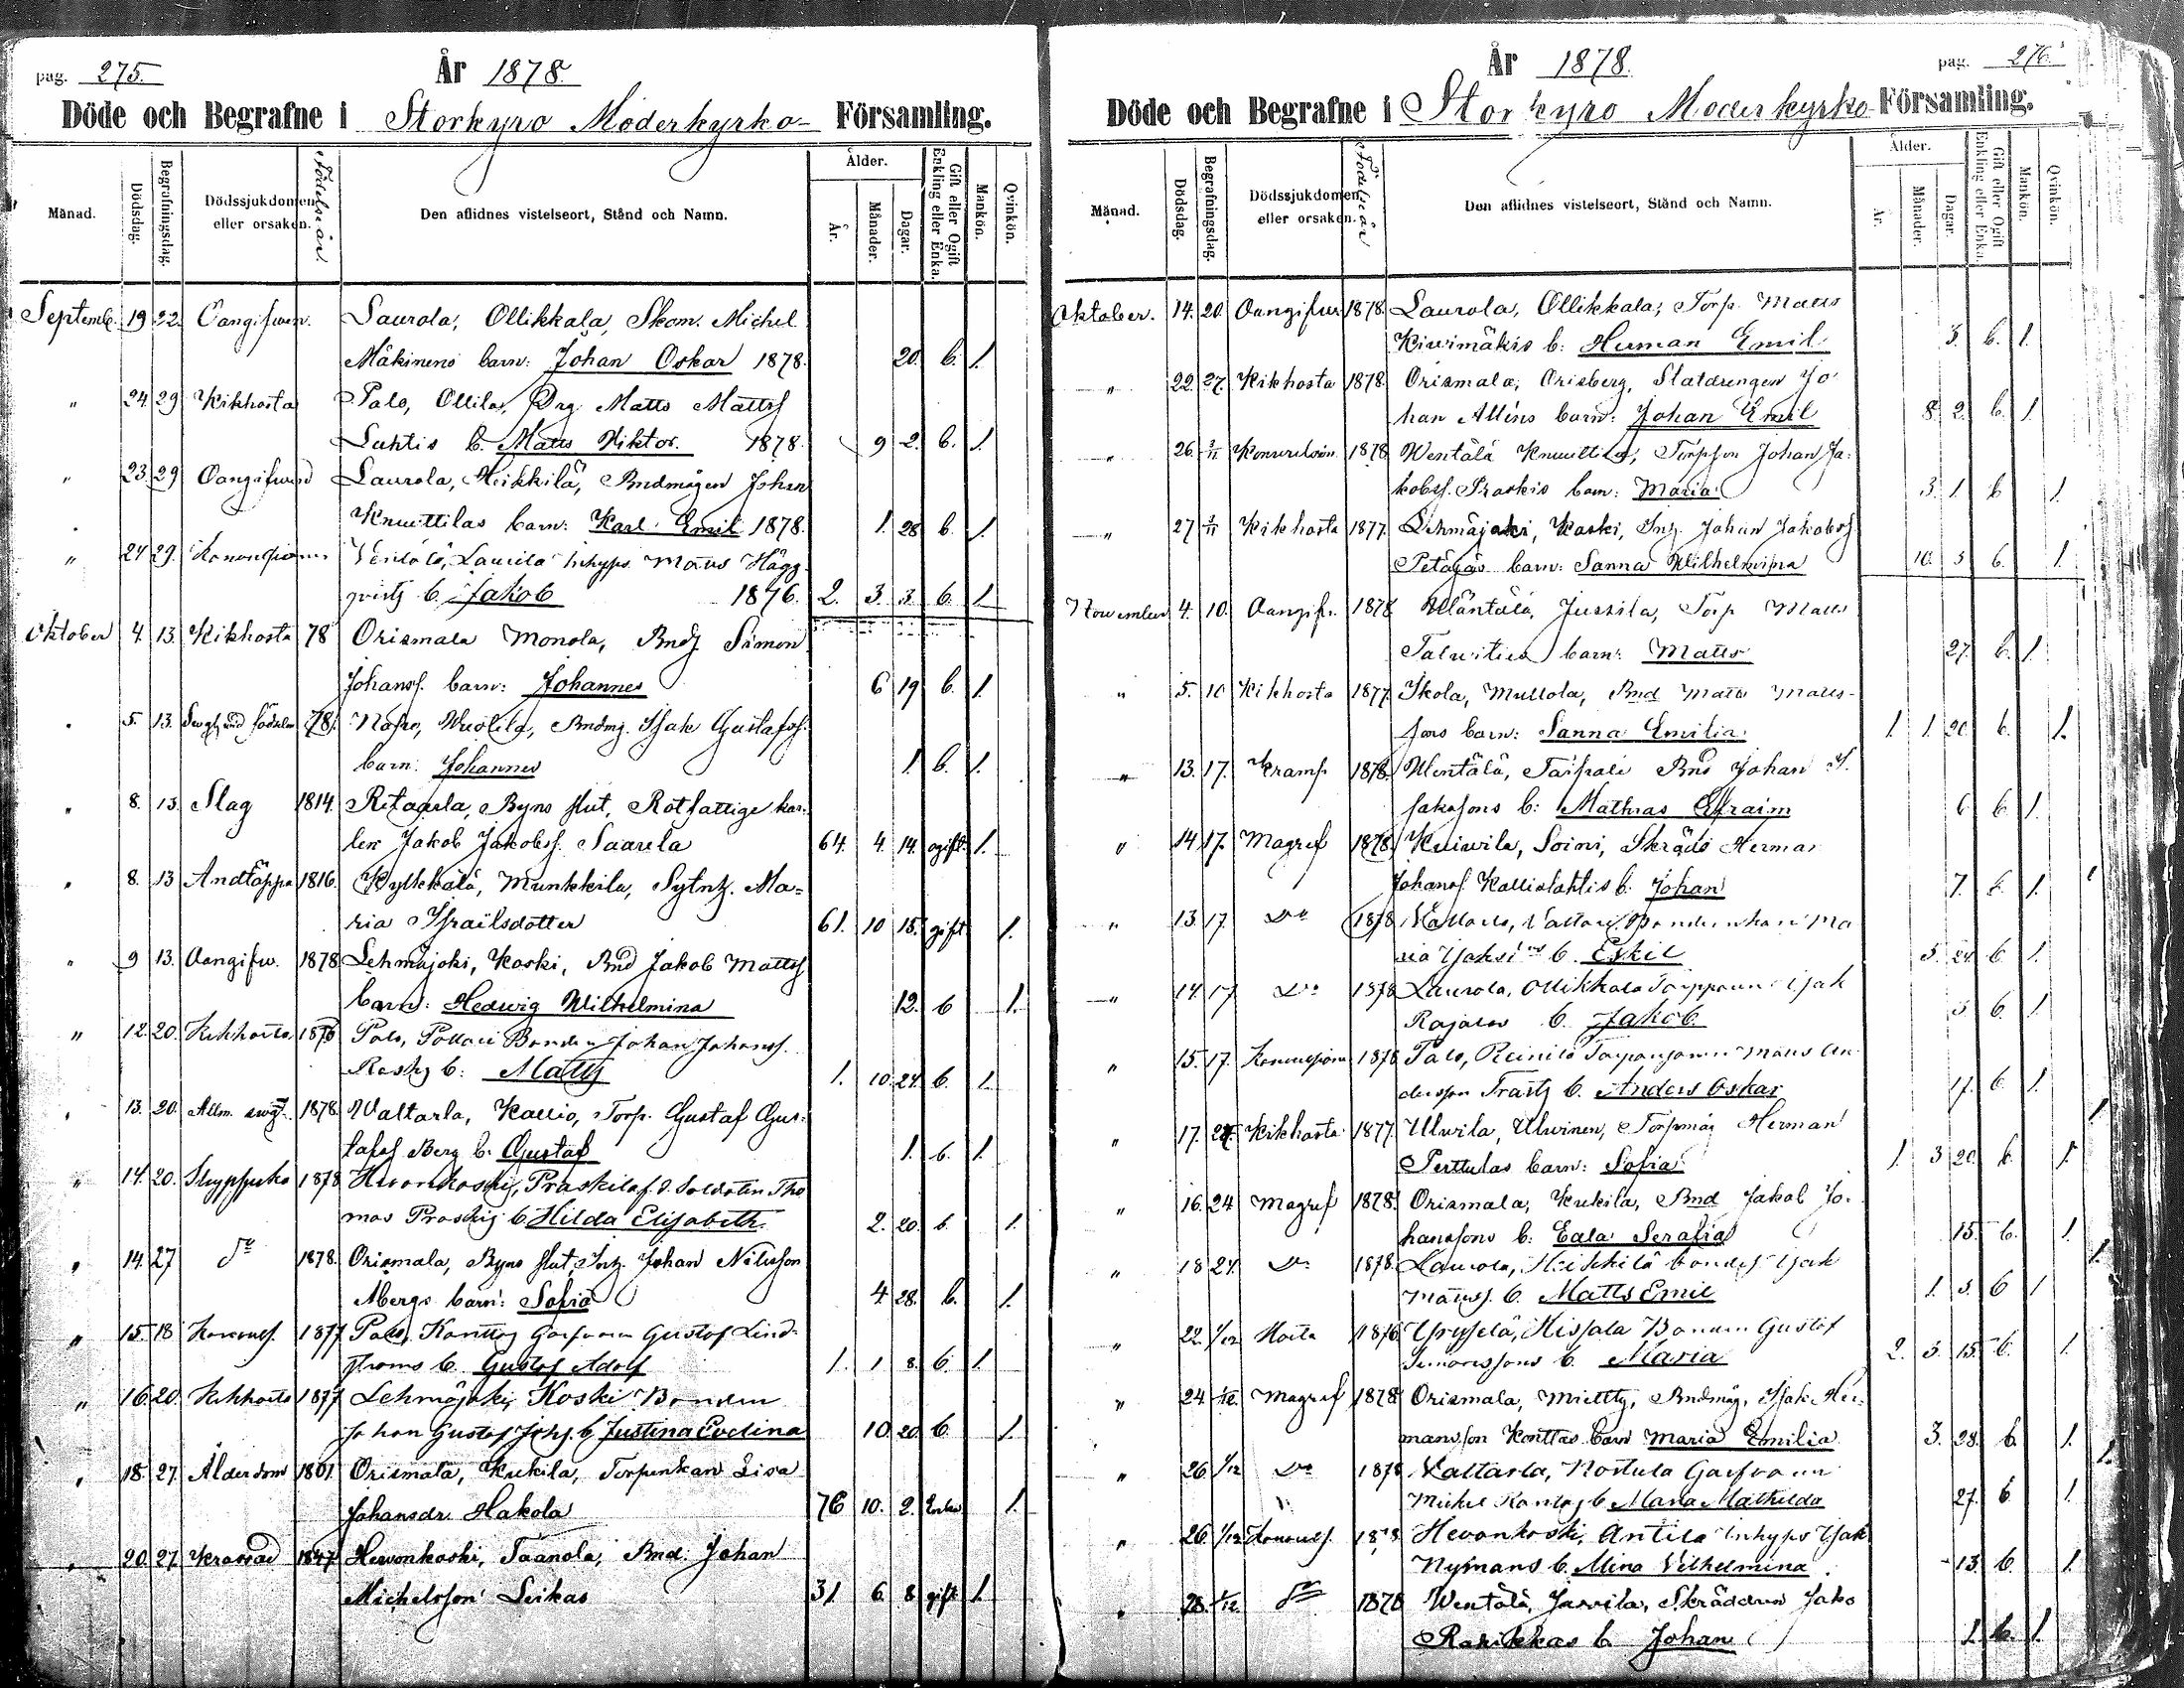 pag. 275.
År 1878.
Döde och Begrafne i Storkyro Moderkyrko- Församling.
Månad.
Dödsdag.
Begrafningsdag.
Dödssjukdomen
eller orsaken.
Födelseår.
Den aflidnes vistelseort, Stånd och Namn.
Ålder.
År.
Månader.
Dagar.
Gift eller Ogift
Enkling eller Enka.
Mankön.
Qvinkön.
Septemb. 19 22. Oangifven. Laurola, Ollikkala, Skom. Michel
Mäkinens barn: Johan Oskar 1878. 20. b. 1.
" 24. 29 Kikhosta Palo, Ollila, Drg Matts Mattss
Luhtis b. Matts Wiktor. 1878. 9 2. b. 1.
" 23. 29 Oangifven Laurola, Heikkilä, Bndmågen Johan
Knuuttilas barn: Karl Emil 1878. 1. 28 b. 1.
" 24 29. Laurila Inhyps Matts Hägg
qvists b. Jakob 1876. 2. 3. 3. b. 1
Oktober 4. 13. Kikhosta 78 Orismala Monola, Bndj Simon
Johanss. barn: Johannes 6 19 b. 1.
5. 13. Svagh. vid födseln 78. Isak Gustafss.
barn: Johannes 1. b. 1.
" 8. 13. Slag 1814. Ritaala, Byns slut, Rotfattige kar-
len Jakob Jakobss. Saarela 64. 4. 14 ogift. 1.
" 8. 13 Andtäppa 1816. Kylkkälä, Munkkila, Sytntz. Ma-
ria Israilsdotter 61. 10 15. gift 1.
" 9 13. Oangifv. 1878 Lehmäjoki, Koski, Bnd Jakob Mattss
barn: Hedwig Wilhelmina 12. b 1.
" 12. 20. Kikhosta 1876 Palo, Pollari Bonden Johan Johanss.
b: Matts 1. 10. 24. b. 1.
13. 20. Allm. svagh. 1878. Waltarla, Kallio, Torp. Gustaf Gus-
tafss Berg b. Gustaf 1. b. 1.
" 14. 20. Strypsjuka 1878 Hevonkoski, Praskila f.d. Soldaten Tho
mas Praskij b Hilda Elisabeth 2. 20. b. 1.
" 14. 27 Do 1878. Orismala, Byns slut, Inh. Johan Nilsson
Abergs barn: Sofia 4. 28. b. 1.
" 15. 18 Konvuls. 1877 Palo, Konttas Garfvaren Gustaf Lind-
ströms b. Gustaf Adolf 1. 1 8. b. 1
" 16. 20. Kikhosta 1877 Lehmäjoki, Koski Bonden
Johan Gustaf Johs. b. Justina Evelina 10. 20 b. 1.
" 18. 27. Ålderdom 1801. Orismala, Kukila, Torpenkan Lisa
Johansdr. Hakola 76 10. 2. Enka 1.
" 20. 27. 1847 Hevonkoski, Täänola, Bnd. Johan
Michelsson Leikas 31. 6. 8 gift 1.
År 1878.
pag. 276.
Döde och Begrafne i Storkyro Moderkyrko- Församling.
Månad.
Dödsdag.
Begrafningsdag.
Dödssjukdomen
eller orsaken.
Födelseår
Den aflidnes vistelseort, Stånd och Namn.
Ålder.
År.
Månader.
Dagar.
Gift eller Ogift
Enkling eller Enka.
Mankön.
Qvinkön.
Oktober. 14. 20. Oangifven 1878. Laurola, Ollikkala, Torp. Matts
Kivimäkis b: Herman Emil 3. b. 1.
" 22. 27. Kikhosta 1878. Orismala, Orisberg, Statdrengen Jo
han Alléns barn: Johan Emil 8. 2. b. 1.
" 26. 3/11 Konvulsion. 1878 Wentälä Knuuttila, Torpson Johan Ja-
kobss. Praskis barn: Maria 3. 1. b 1.
" 27 3/11 Kikhosta 1877. Lehmäjoki, Koski, Inh. Johan Jakobss
Petäjäs barn: Sanna Wilhelmina 10. 3 b. 1.
November 4. 10. Oangifv. 1878 Wäntälä, Jussila, Torp Matts
Talvities barn: Matts 27. b. 1.
" 5. 10 Kikhosta 1877. Ikola, Mullola, Bnd Matts Matts-
sons barn: Sanna Emilia 1. 1. 20 b. 1.
" 13. 17. Kramp 1878. Wentälä, Taipale Bnd Johan I.
saksons b: Mathias Efraim 6 b 1.
" 14 17. Magref 1878 Kuivila, Soini, Skrädd Herman
Johanss. Kalliolahtis b. Johan 7. b. 1.
" 13. 17. Do 1878 Ma
ria b. Eskil 5. 24 b 1.
" 14. 17 Do 1878 Laurola, Ollikkala Torpparen Isak
Rajalas b. Jakob 3 b. 1.
" 15. 17. 1878 Palo, Reinilä Matts An
dersson b. Anders Oskar 17. b. 1.
" 17. 24 Kikhosta 1877. Ulvila, Ulvinen, Torpmåg Herman
Perttulas barn: Sofia 1. 3 20. b. 1.
" 16. 24 Magref 1878. Orismala, Kukila, Bnd Jakob Jo-
hanssons b: Edla Serafia 15. b. 1.
" 18 24. Do 1878. Laurola, Heikkilä Isak
Mattss. b. Matts Emil 1. 3. b 1
" 22. 1/12 Hosta 1876 Yryselä, Hissala Bonden Gustaf
Simonssons b. Maria 2. 3. 15. b. 1.
" 24. 1/12. Magref 1878 Orismala, Miettty, Bndmåg. Isak Her-
mansson Konttas barn Maria Emilia 3. 28. b. 1.
" 26 1/12 Do 1878 Waltarla, Rostula Garfvaren
Mickel b Maria Mathilda 27. b 1
" 26. 1/12 Konvuls. 1878 Hevonkoski, Antila Inhyps Isak
Nymans b. Mina Vilhelmina 13. b. 1.
28. 1/12. Do 1878 Wentälä, Jarvila, Skräddren Jako
b. Johan 1. b. 1.